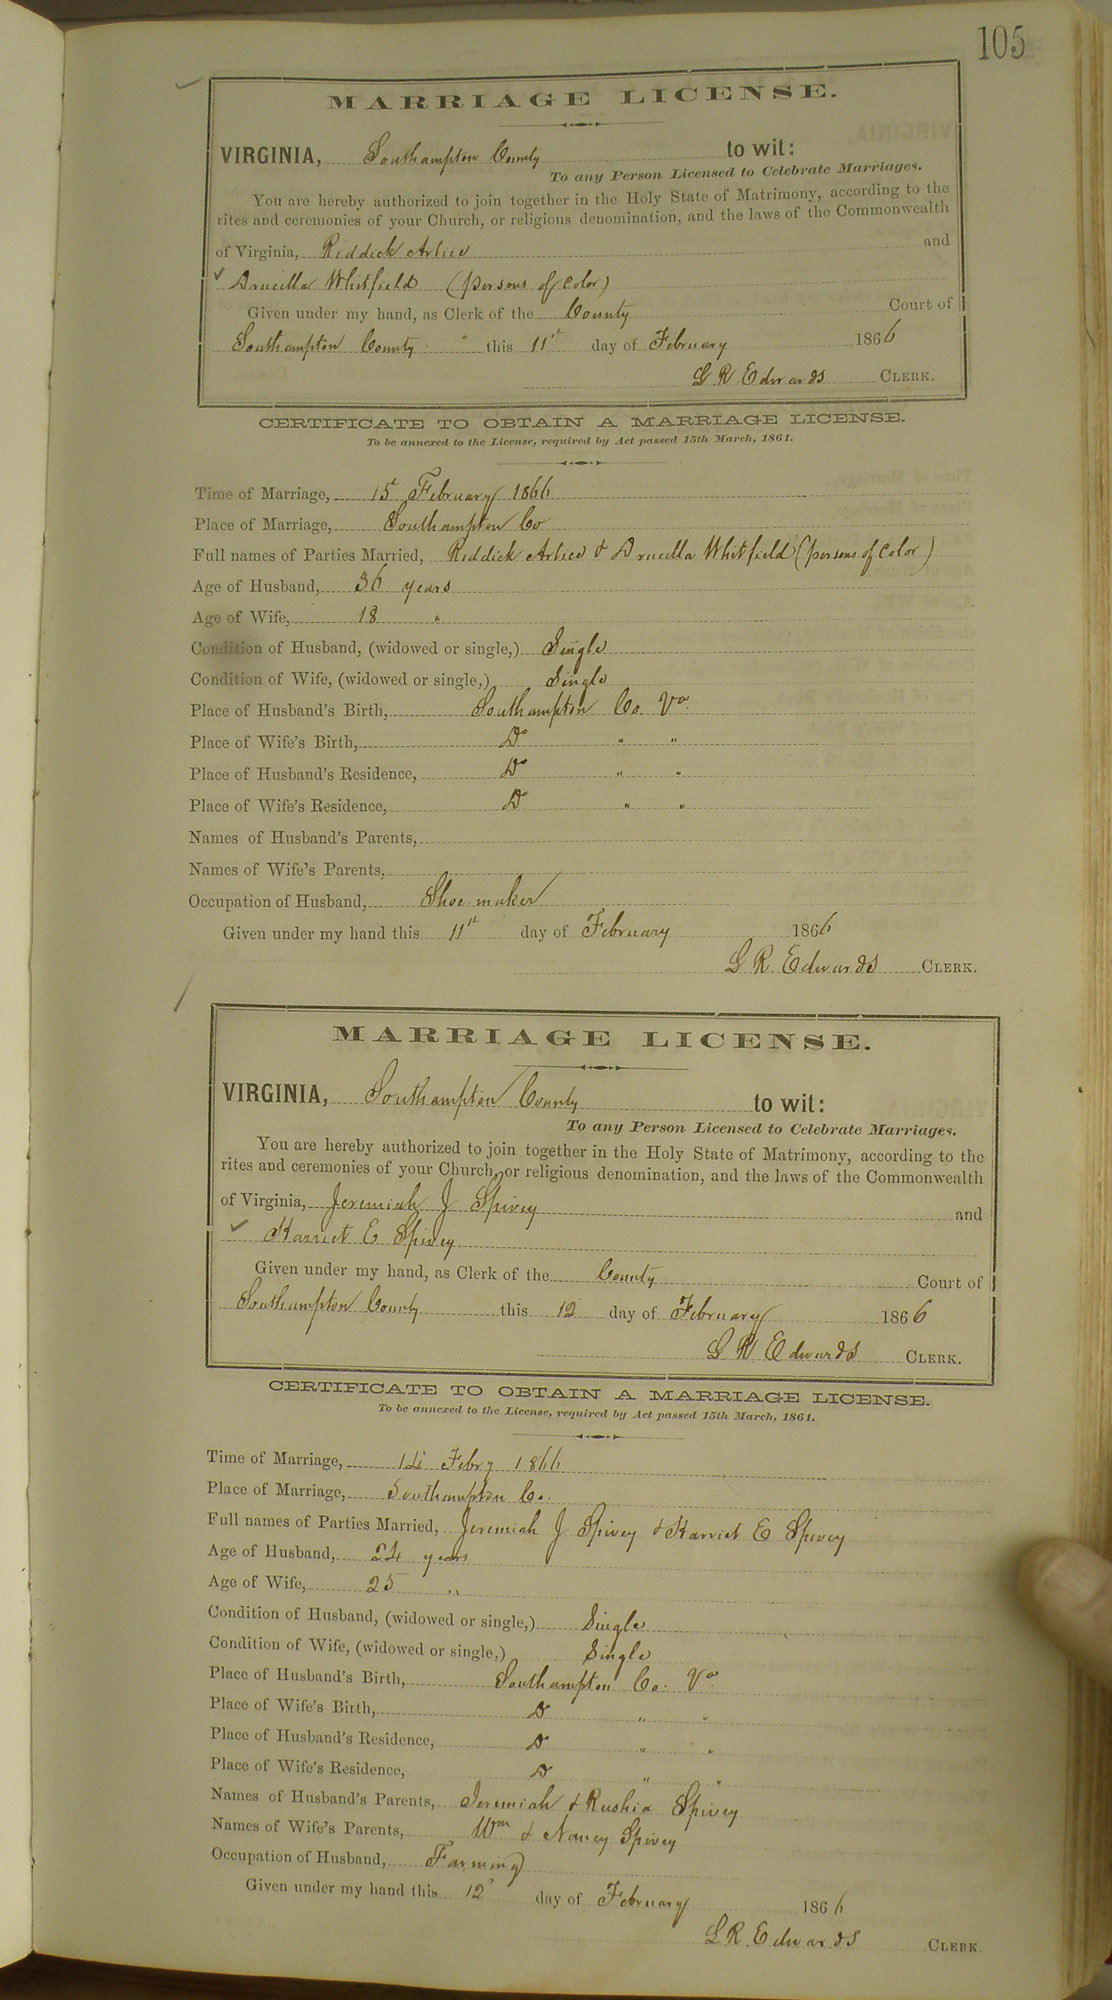 105
MARRIAGE LICENSE.
VIRGINIA, Southampton County to wit:
To any Person Licensed to Celebrate Marriages.
You are hereby authorized to join together in the Holy State of Matrimony, according to the
rites and ceremonies of your Church, or religious denomination, and the laws of the Commonwealth
of Virginia, Riddick Artice and
✓ Drucilla Whitfield (persons of Color)
Given under my hand, as Clerk of the County Court of
Southampton County this 11th day of February 1866
L R. Edwards CLERK.
CERTIFICATE TO OBTAIN A MARRIAGE LICENSE.
To be annexed to the License, required by Act passed 15th March, 1861.
Time of Marriage, 15 February 1866
Place of Marriage, Southampton Co
Full names of Parties Married, Riddick Artice & Drucilla Whitfield (persons of Color)
Age of Husband, 36 years
Age of Wife, 18 "
Condition of Husband, (widowed or single,) Single
Condition of Wife, (widowed or single,) Single
Place of Husband's Birth, Southampton Co. Va.
Place of Wife's Birth, Do " "
Place of Husband's Residence, Do " "
Place of Wife's Residence, Do " "
Names of Husband's Parents,
Names of Wife's Parents,
Occupation of Husband, Shoe maker
Given under my hand this 11th day of February 1866
L R. Edwards CLERK.
MARRIAGE LICENSE.
VIRGINIA, Southampton County to wit:
To any Person Licensed to Celebrate Marriages.
You are hereby authorized to join together in the Holy State of Matrimony, according to the
rites and ceremonies of your Church, or religious denomination, and the laws of the Commonwealth
of Virginia, Jeremiah J Spivey and
✓ Harriet E Spivey
Given under my hand, as Clerk of the County Court of
Southampton County this 12 day of February 1866
L R. Edwards CLERK.
CERTIFICATE TO OBTAIN A MARRIAGE LICENSE.
To be annexed to the License, required by Act passed 15th March, 1861.
Time of Marriage, 14 Febry 1866
Place of Marriage, Southampton Co.
Full names of Parties Married, Jeremiah J Spivey & Harriet E Spivey
Age of Husband, 24 years
Age of Wife, 25 "
Condition of Husband, (widowed or single,) Single
Condition of Wife, (widowed or single,) Single
Place of Husband's Birth, Southampton Co. Va.
Place of Wife's Birth, Do " "
Place of Husband's Residence, Do " "
Place of Wife's Residence, Do " "
Names of Husband's Parents, Jeremiah & Rushia Spivey
Names of Wife's Parents, Wm & Nancy Spivey
Occupation of Husband, Farming
Given under my hand this 12 day of February 1866
L R. Edwards CLERK.